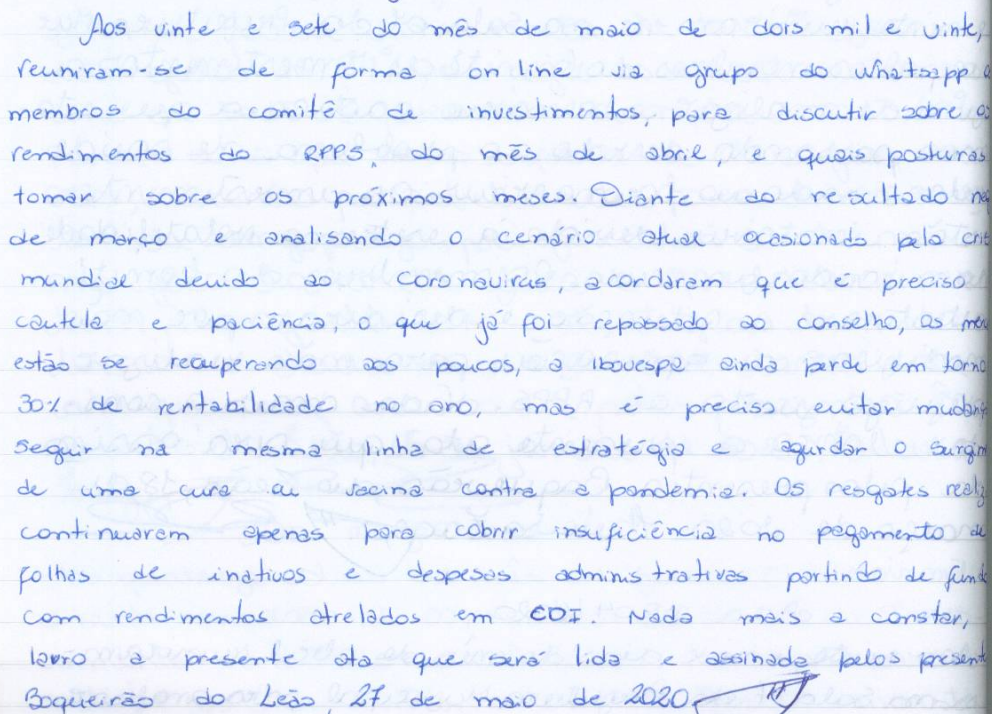 Aos vinte e sete do mês de maio de dois mil e vinte,
reuniram-se de forma on line via grupo do Whatsapp o
membros do comitê de investimentos, para discutir sobre os
rendimentos do RPPS, do mês de abril, e quais posturas
tomar sobre os próximos meses. Diante do resultado ne
de março e analisando o cenário atual ocasionado pela cris
mundial devido ao coronavirus, acordaram que é preciso
cautela e paciência, o que já foi repassado ao conselho, os mer
estão se recuperando aos poucos, a ibovespa ainda perde em torno
30% de rentabilidade no ano, mas é preciso evitar mudan
seguir na mesma linha de estratégia e agurdar o surgim
de uma cura ou vacina contra a pandemia. Os resgates realiz
continuarem apenas para cobrir insuficiência no pagamento de
folhas de inativos e despesas administrativas partindo de fund
com rendimentos atrelados em CDI. Nada mais a constar,
lavro a presente ata que será lida e assinada pelos present
Boqueirão do Leão, 27 de maio de 2020